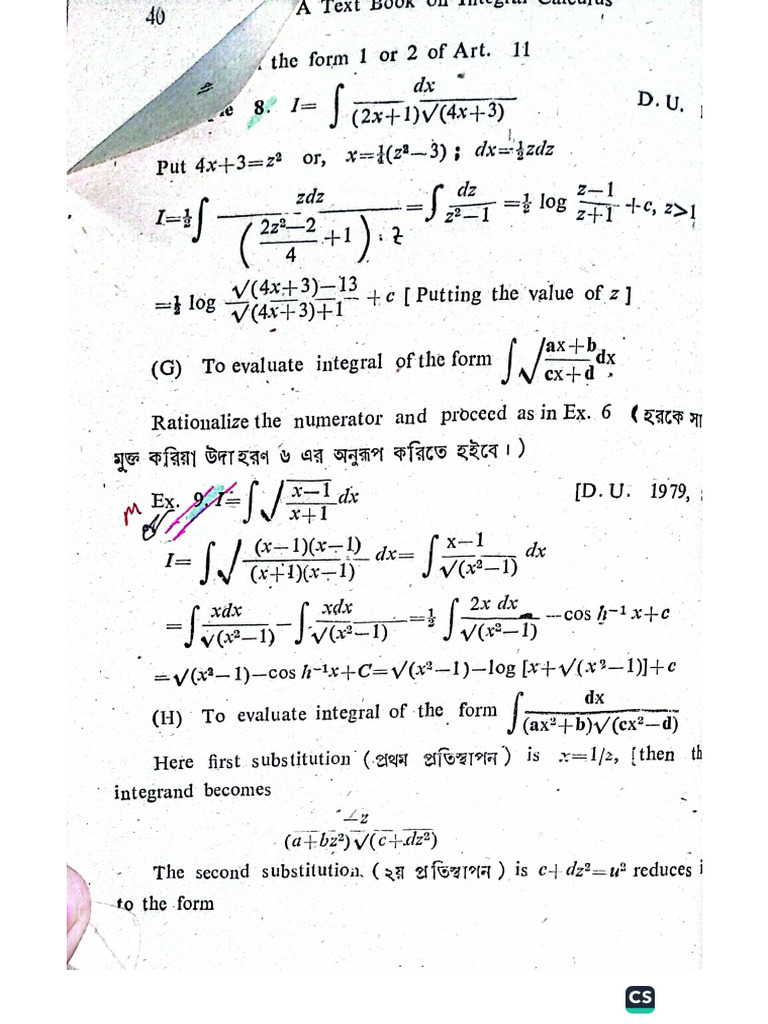 40 A Text Book on Integral Calculus
the form 1 or 2 of Art. 11
8. I= ∫ dx / (2x+1)√(4x+3) D. U.
Put 4x+3=z² or, x=¼(z²−3) ; dx=½zdz
I=½∫ zdz / ( (2z²−2)/4 +1 ) . z = ∫ dz / z²−1 =½ log z−1 / z+1 +c, z>1
=½ log √(4x+3)−13 / √(4x+3)+1 +c [ Putting the value of z ]
(G) To evaluate integral of the form ∫ √ ax+b / cx+d dx
Rationalize the numerator and proceed as in Ex. 6 ( হরকে
মুক্ত করিয়া উদাহরণ ৬ এর অনুরূপ করিতে হইবে। )
Ex. 9. I= ∫ √ x−1 / x+1 dx [D. U. 1979,
I= ∫ √ (x−1)(x−1) / (x+1)(x−1) dx= ∫ x−1 / √(x²−1) dx
= ∫ xdx / √(x²−1) − ∫ xdx / √(x²−1) =½ ∫ 2x dx / √(x²−1) −cos h⁻¹ x+c
=√(x²−1)−cos h⁻¹x+C=√(x²−1)−log [x+√(x²−1)]+c
(H) To evaluate integral of the form ∫ dx / (ax²+b)√(cx²−d)
Here first substitution ( প্রথম প্রতিস্থাপন ) is x=1/z, [then
integrand becomes
−z / (a+bz²)√(c+dz²)
The second substitution, ( ২য় প্রতিস্থাপন ) is c+dz²=u² reduces
to the form
CS